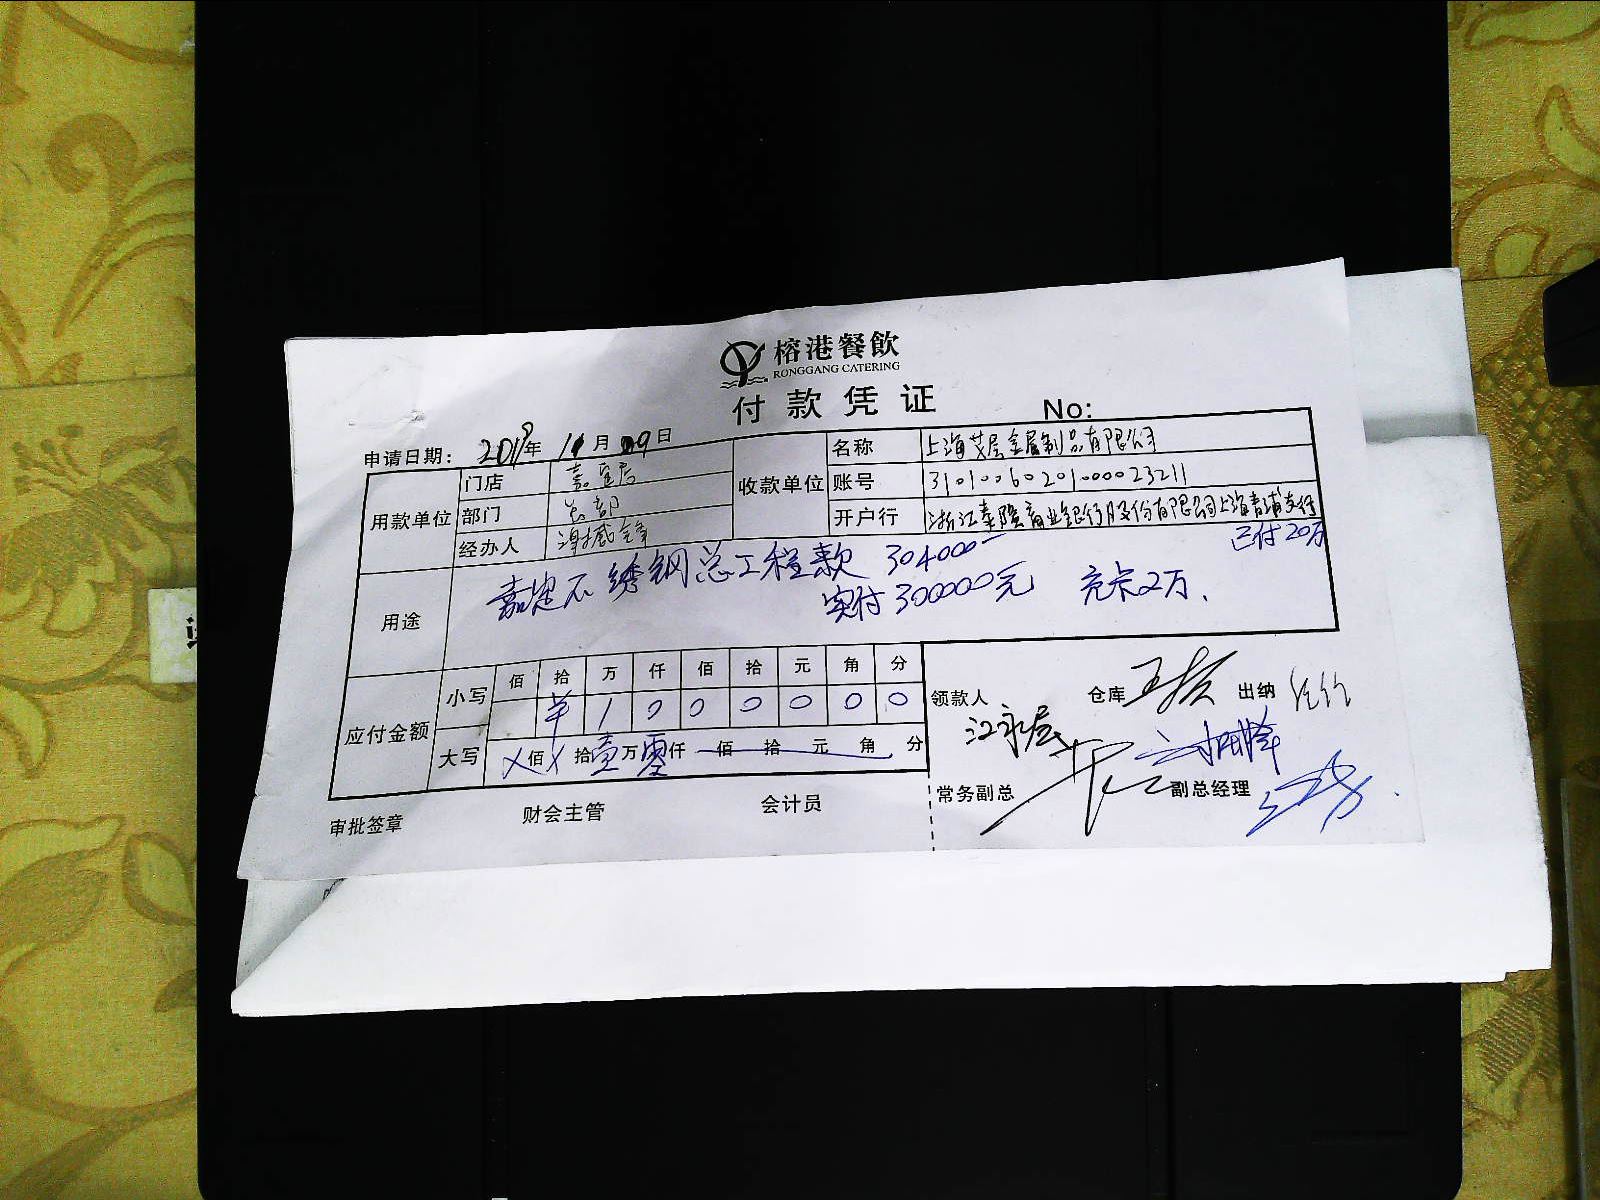 榕港餐飲
RONGGANG CATERING
付款凭证
No:
申请日期: 2018年 11月 09日
用款单位 门店 嘉定店
部门 总部
经办人 谢盛
收款单位 名称 上海艾居金属制品有限公司
账号 31010060201000023211
开户行 浙江泰隆商业银行股份有限公司上海青浦支行
用途 嘉定不锈钢总工程款 304000 已付20万
实付300000元 充卡2万.
应付金额 小写 佰 拾 万 仟 佰 拾 元 角 分
羊 1 0 0 0 0 0 0 0
大写 佰 拾 壹万 零仟 佰 拾 元 角 分
领款人 江永居 仓库 出纳
常务副总 副总经理
审批签章 财会主管 会计员